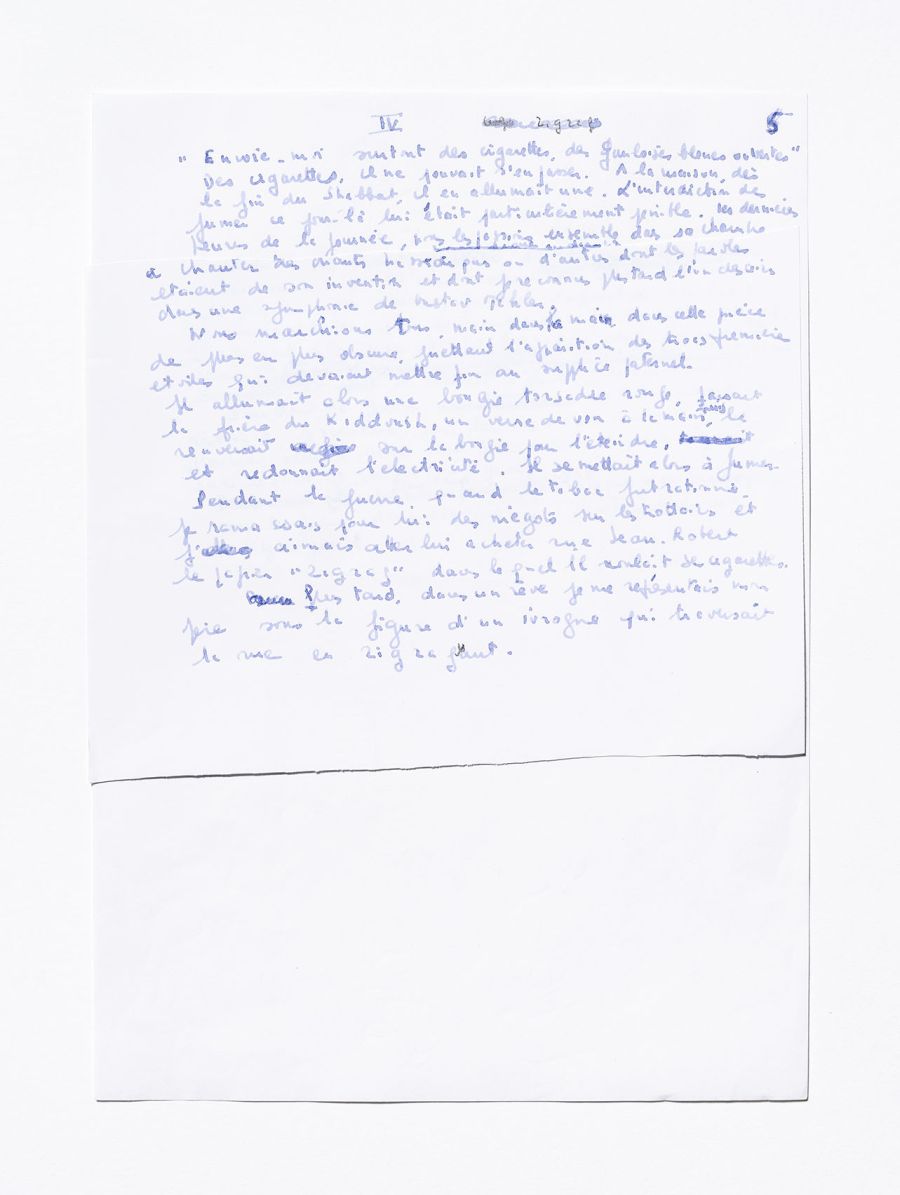 IV zigzag 5
" Envoie-moi surtout des cigarettes, des Gauloises bleues ou vertes"
Des cigarettes, il ne pouvait s'en passer. A la maison, dès
la fin du Shabbat, il en allumait une. L'interdiction de
fumer ce jour-là lui était particulièrement pénible. les dernières
heures de la journée, nous les passions ensemble dans sa chambre
à chanter des chants ou d'autres dont les paroles
étaient de son invention et dont je reconnus plus tard l'un des airs
dans une symphonie de Gustav Mahler.
Nous marchions tous, main dans la main dans cette pièce
de plus en plus obscure, guettant l'apparition des trois premières
étoiles qui devaient mettre fin au supplice paternel.
Il allumait alors une bougie torsadée rouge, faisait
la prière du Kiddoush, un verre de vin à la main, le
renversait sur la bougie pour l'éteindre,
et redonnait l'électricité. Il se mettait alors à fumer.
Pendant la guerre quand le tabac fut rationné
je ramassais pour lui des mégots sur les trottoirs et
j' aimais aller lui acheter rue Jean-Robert
le papier "zigzag" dans lequel il roulait ses cigarettes.
Plus tard, dans un rêve je me représentais mon
père sous la figure d'un ivrogne qui traversait
la rue en zigzaguant.